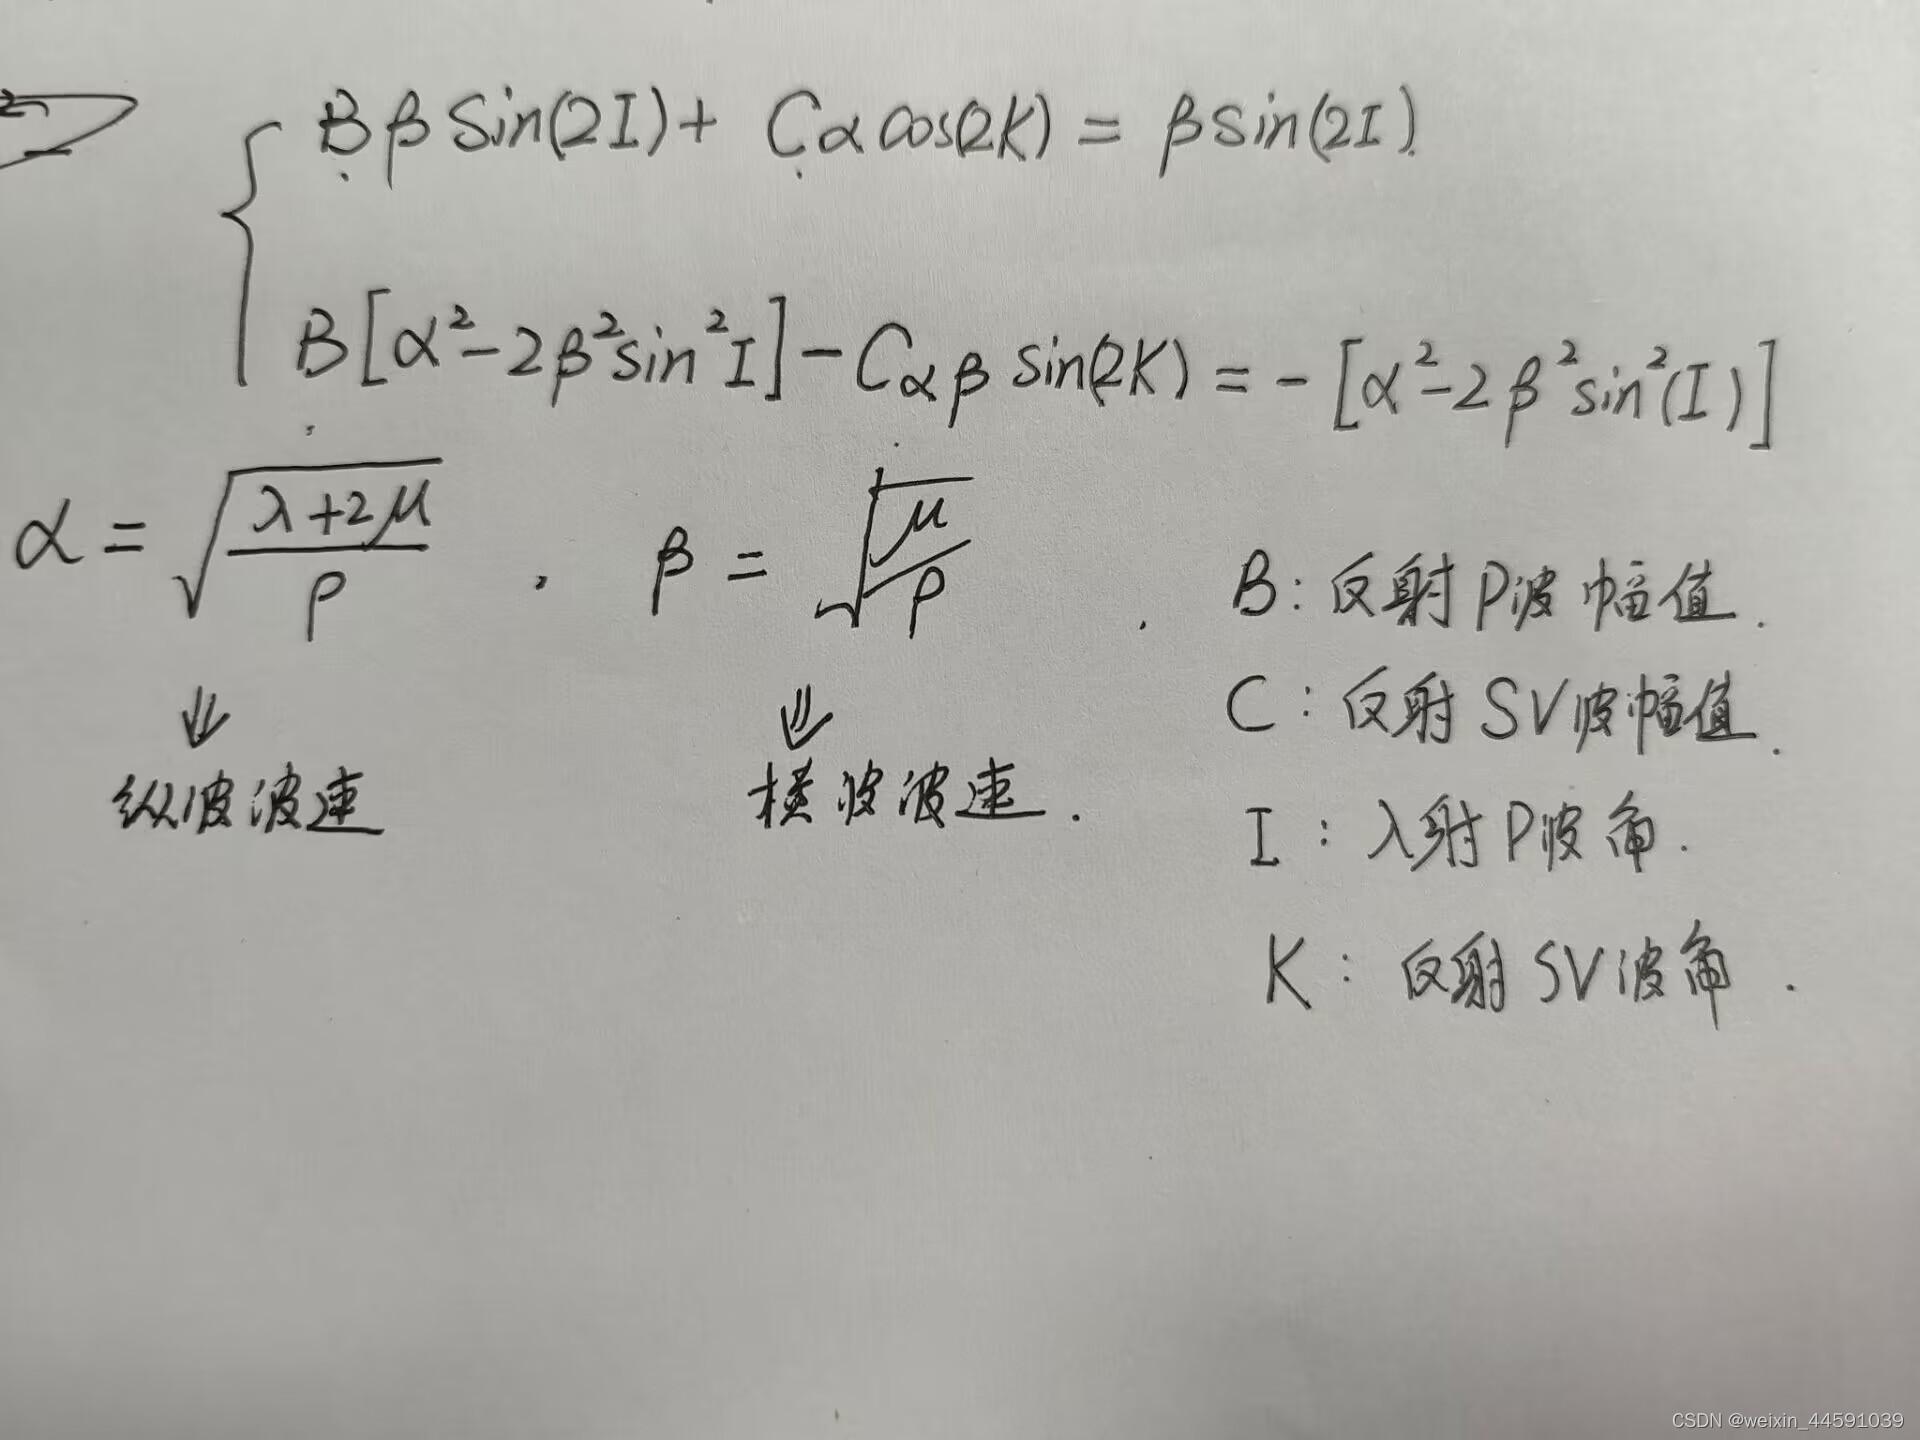 Bβ Sin(2I) + Cα cos(2K) = β sin(2I)
B[α²-2β²sin²I] - Cαβ sin(2K) = -[α²-2β²sin²(I)]
α = √((λ+2μ)/ρ) , β = √(μ/ρ) .
B: 反射P波幅值.
⇓ ⇓
C: 反射SV波幅值.
纵波波速 横波波速.
I: 入射P波角.
K: 反射SV波角.
CSDN @weixin_44591039